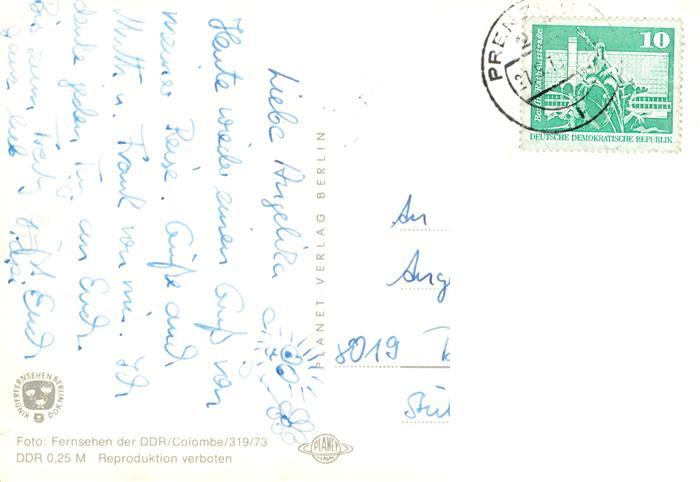 Liebe Angelika
Heute wieder einen Gruß von
meiner Reise. Grüße auch
Mutti u. Frank von mir. Ich
denke jeden Tag an Euch.
Bis zum
ganz lieb Euch
PLANET VERLAG BERLIN
An
Ang
8019
PREN
10
Berlin, Rathausstraße
DEUTSCHE DEMOKRATISCHE REPUBLIK
KINDERFERNSEHEN BERLIN
DDR
Foto: Fernsehen der DDR/Colombe/319/73
DDR 0,25 M Reproduktion verboten
PLANET
VERLAG